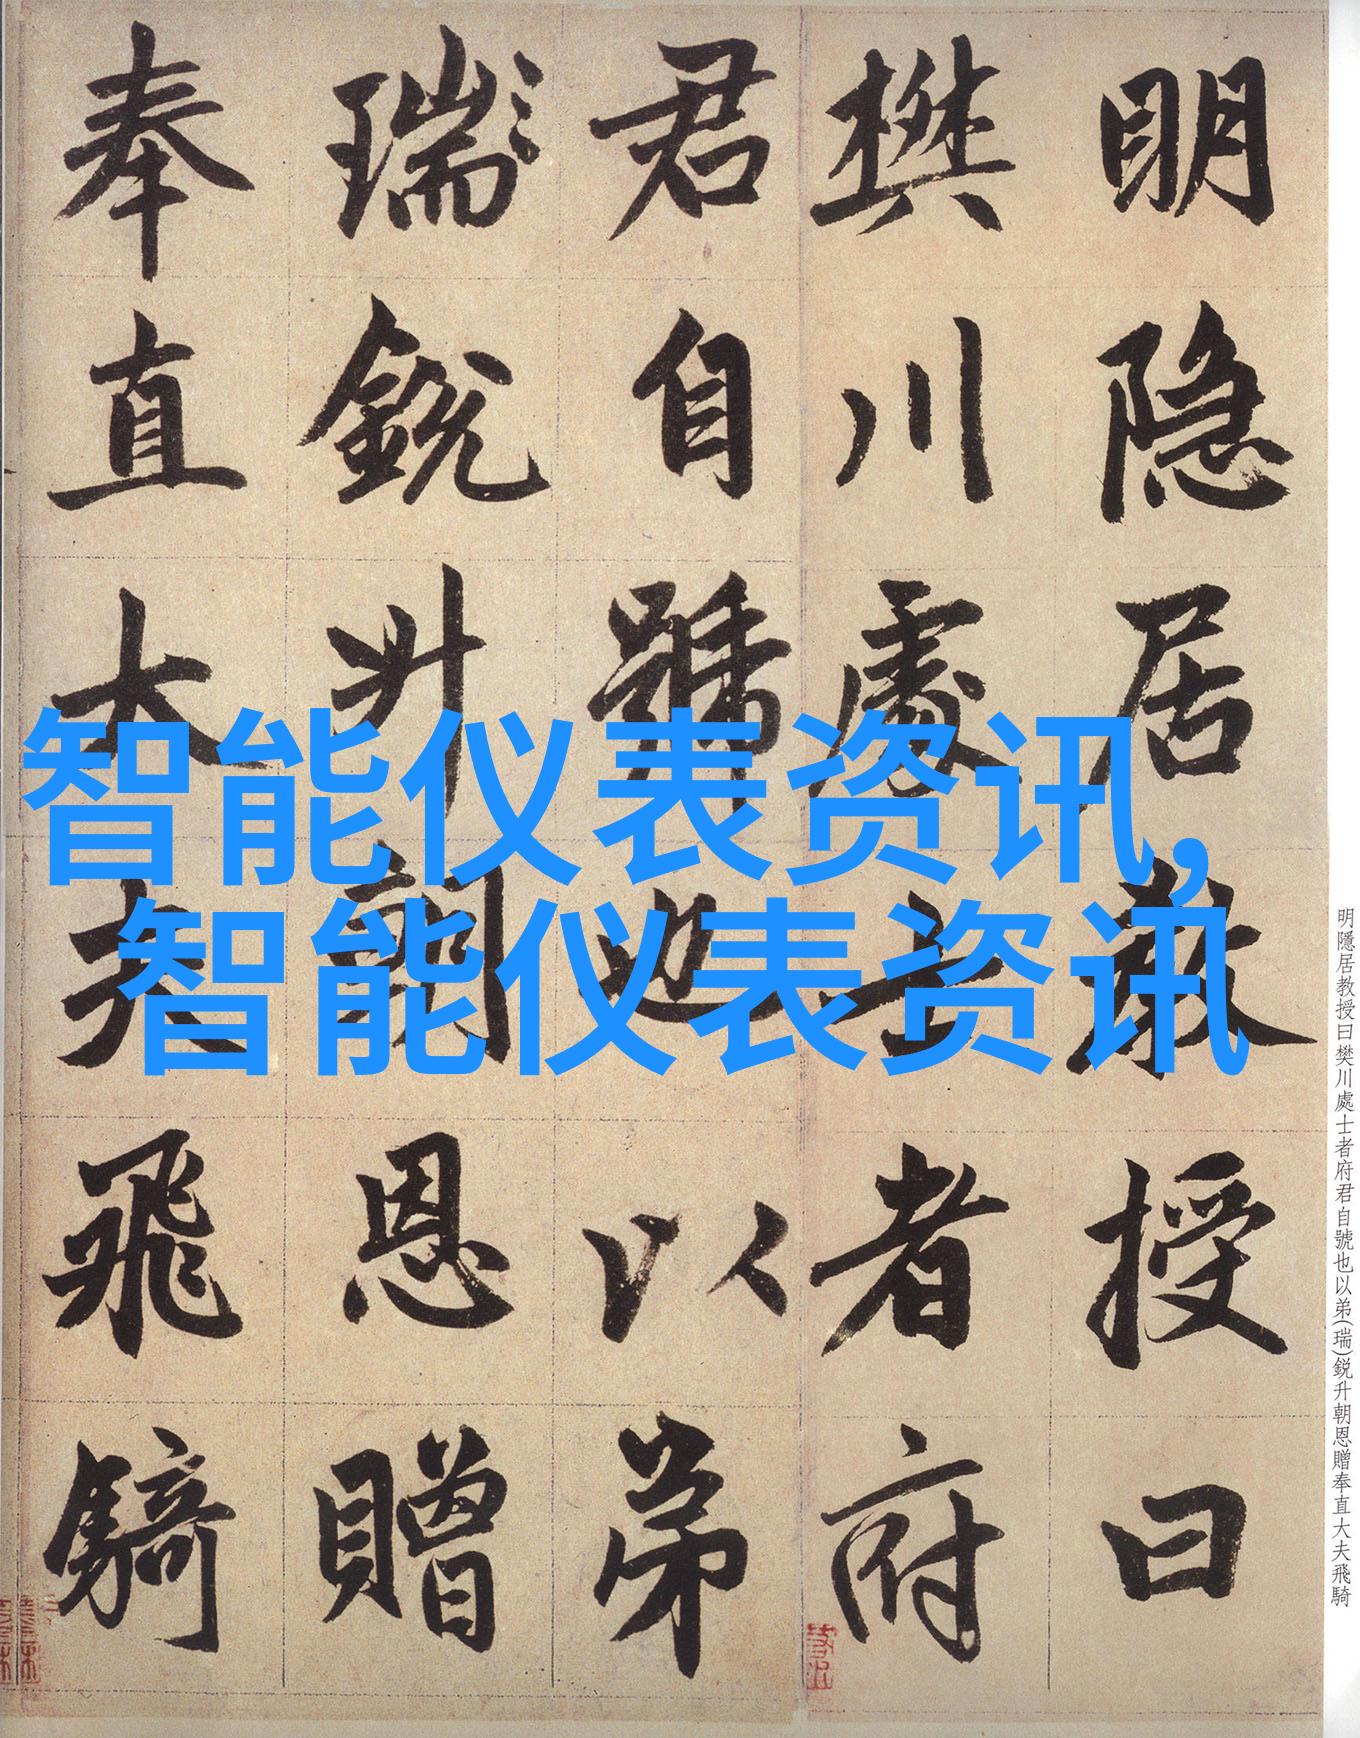 明隐居教授曰
樊川處士者府
君自號也以弟
瑞銳升朝恩贈
奉直大夫飛騎
智能仪表资讯,
智能仪表资讯
明隱居教授曰樊川處士者府君自號也以弟(瑞)鋭升朝恩贈奉直大夫飛騎